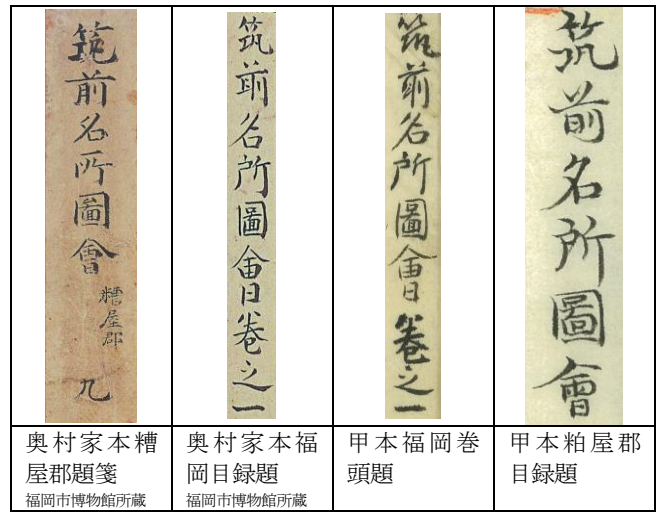 筑前名所圖會
糟屋郡
九
筑前名所圖會卷之一
筑前名所圖會卷之一
筑前名所圖會
奥村家本糟
屋郡題箋
福岡市博物館所蔵
奥村家本福
岡目録題
福岡市博物館所蔵
甲本福岡巻
頭題
甲本粕屋郡
目録題